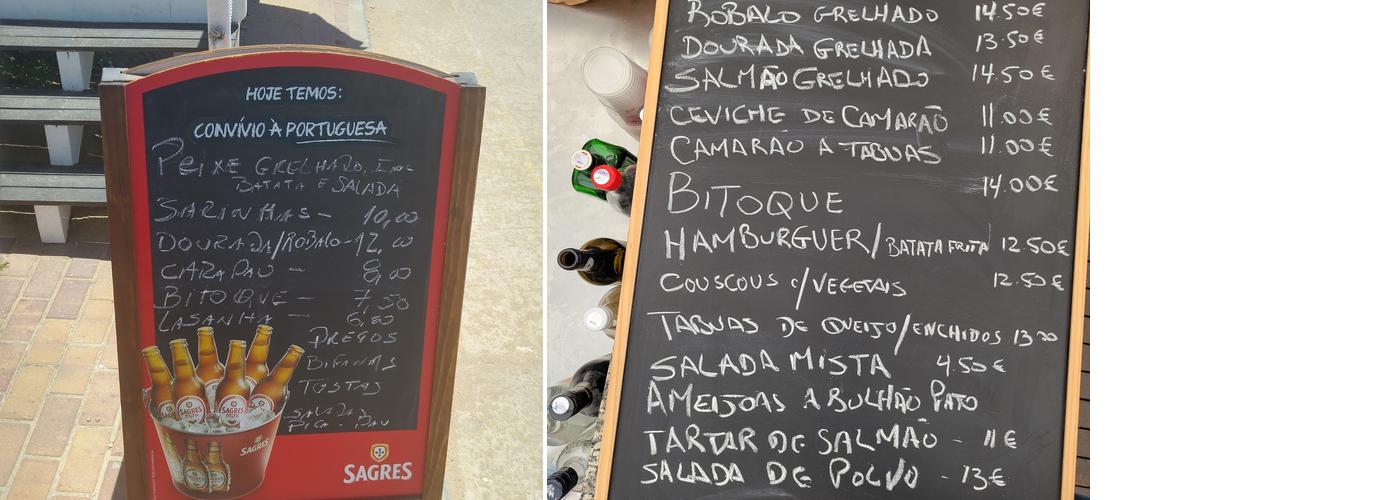 HOJE TEMOS:
CONVÍVIO À PORTUGUESA
PEIXE GRELHADO,
BATATA E SALADA
SARINHAS - 10,00
DOURADA/ROBALO - 12,00
CARAPAU - 8,00
BITOQUE - 7,50
LASANHA - 6,50
PREGOS
BIFANAS
TOSTAS
SALADA
PICA-PAU
SAGRES
mini
SAGRES
mini
SAGRES
SAGRES
ROBALO GRELHADO 14.50€
DOURADA GRELHADA 13.50€
SALMÃO GRELHADO 14.50€
CEVICHE DE CAMARÃO 11.00€
CAMARÃO A TABUAS 11.00€
BITOQUE 14.00€
HAMBURGUER/BATATA FRITA 12.50€
COUSCOUS c/VEGETAIS 12.50€
TABUAS DE QUEIJO/ENCHIDOS 13.00
SALADA MISTA 4.50€
AMEIJOAS A BULHÃO PATO
TARTAR DE SALMÃO - 11€
SALADA DE POLVO - 13€